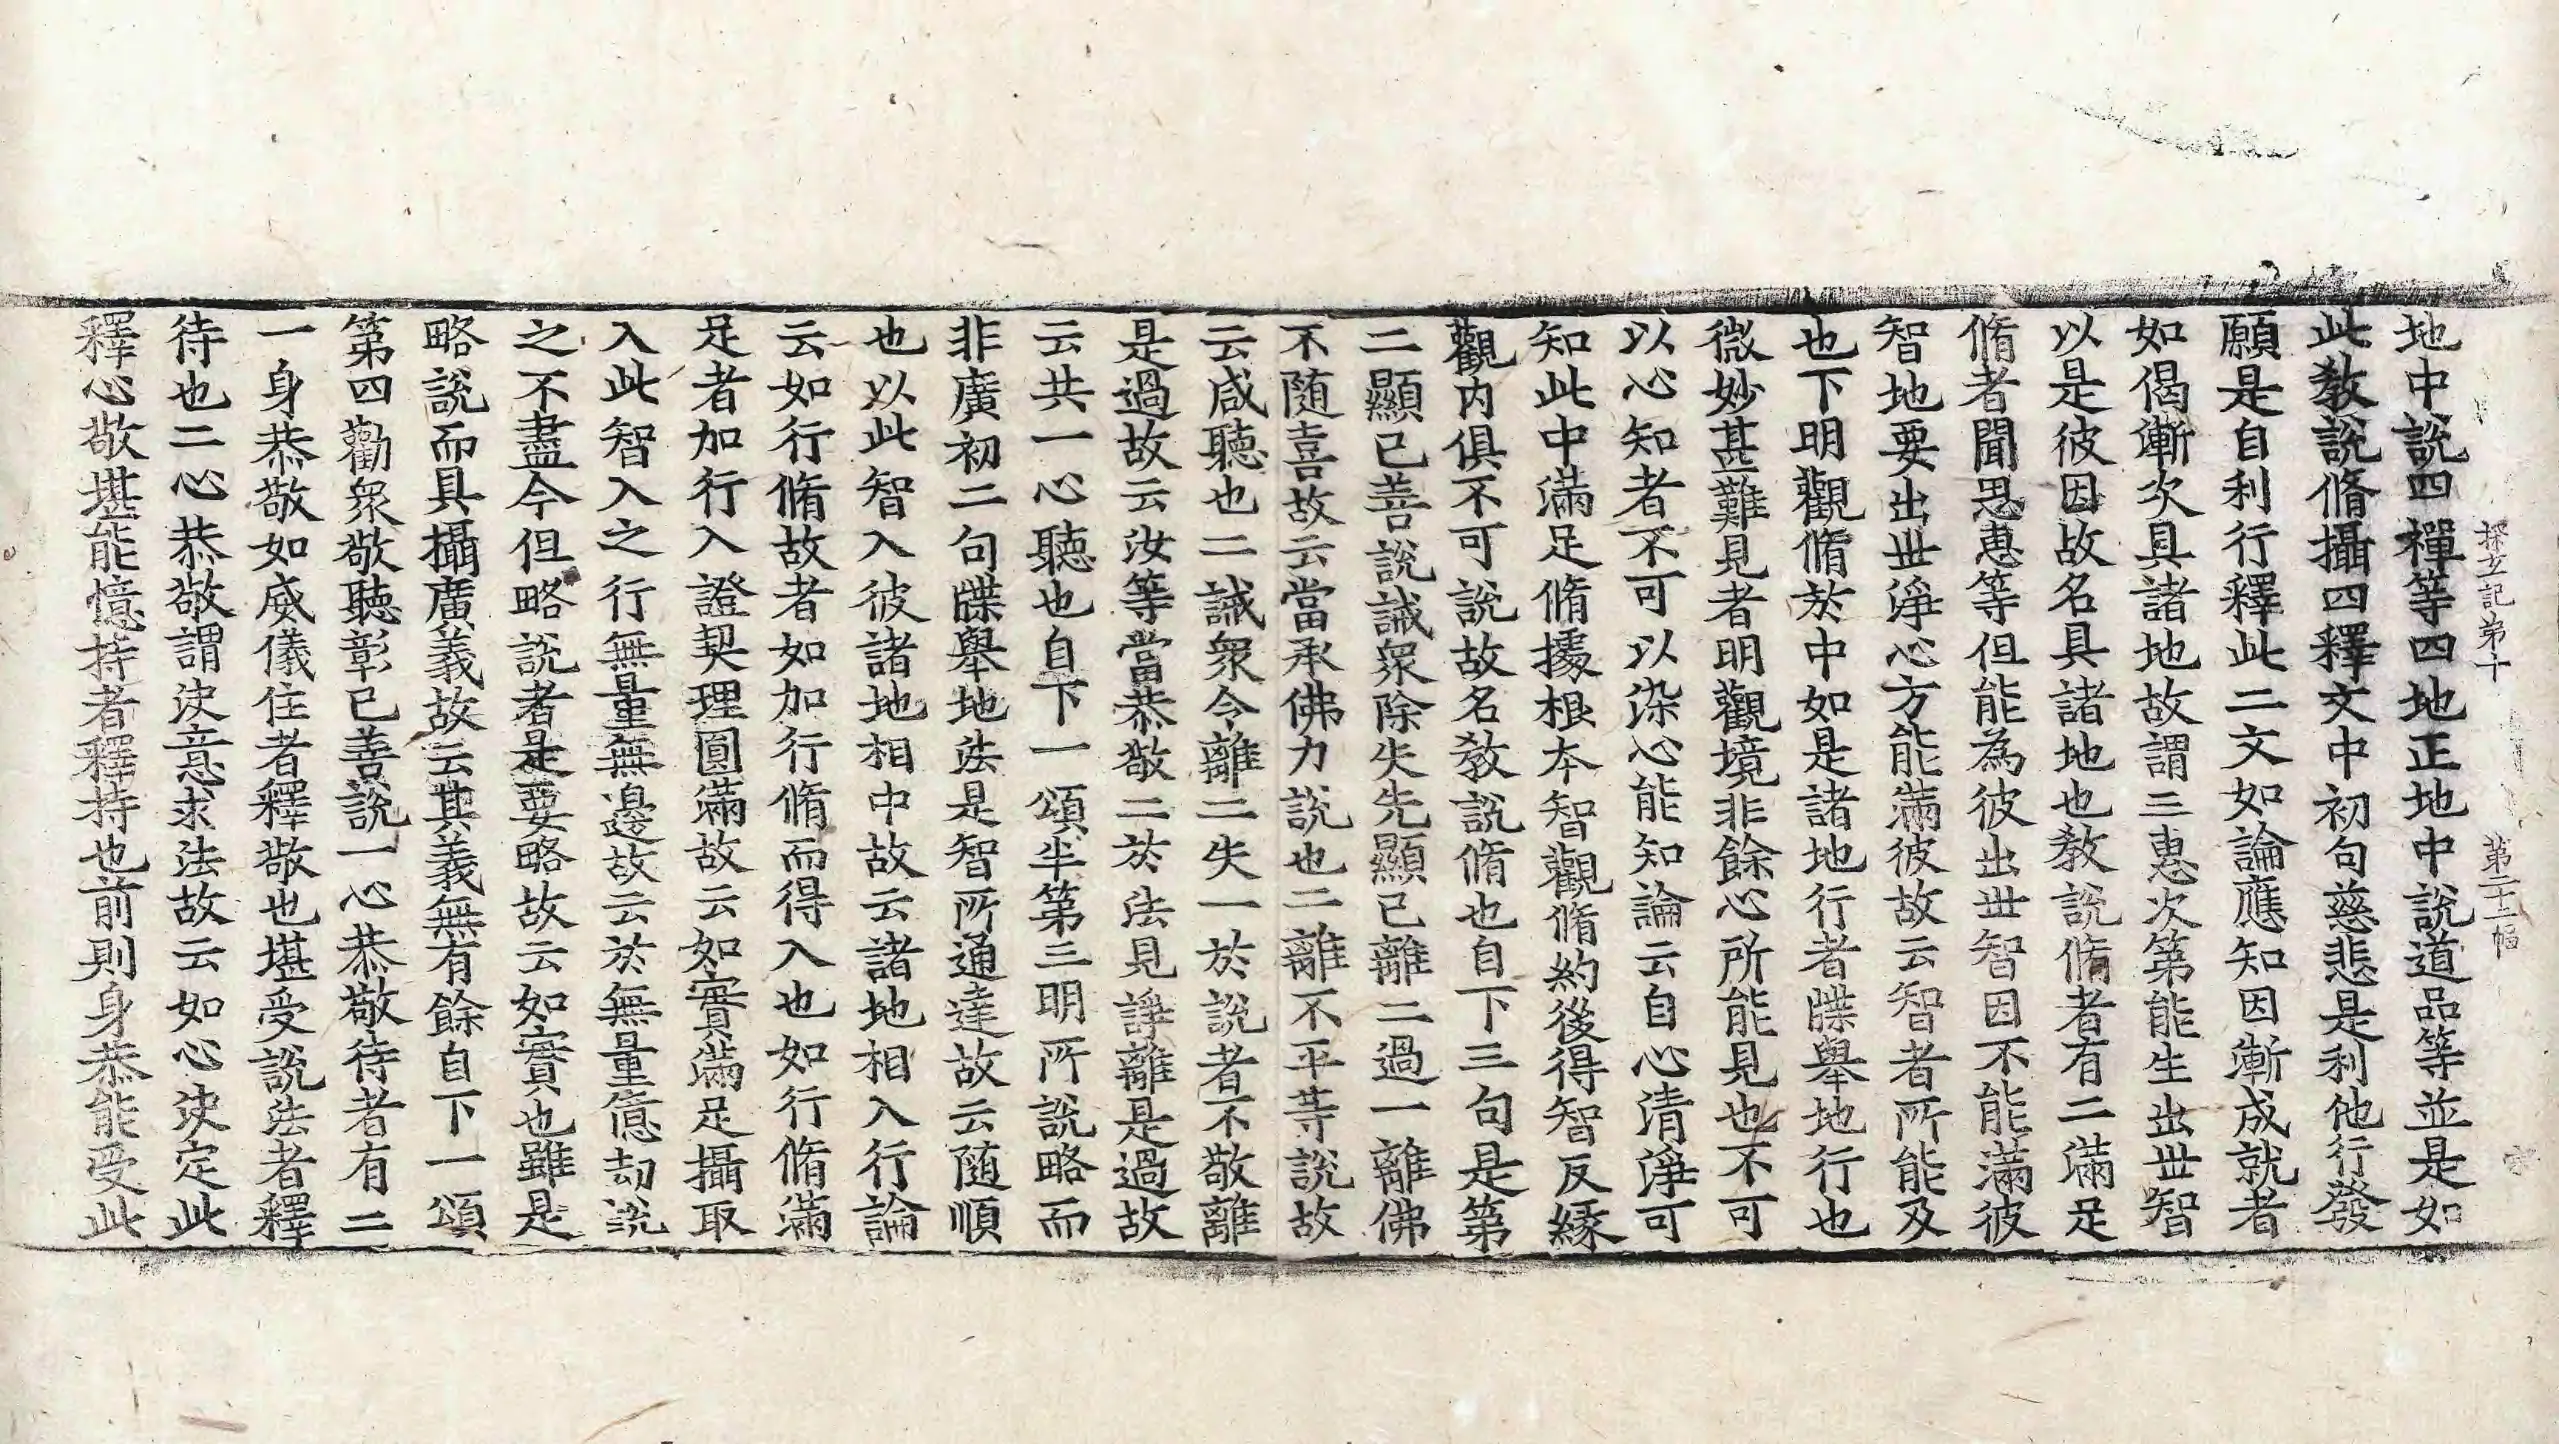 探玄記第十 第二十二幅
地中說四禪等四地正地中說道品等並是如
此教說脩攝四釋文中初句慈悲是利他行發
願是自利行釋此二文如論應知因漸成就者
如偈漸次具諸地故謂三惠次第能生出世智
以是彼因故名具諸地也教說脩者有二滿足
脩者聞思惠等但能為彼出世智因不能滿彼
智地要出世淨心方能滿彼故云智者所能及
也下明觀脩於中如是諸地行者牒舉地行也
微妙甚難見者明觀境非餘心所能見也不可
以心知者不可以染心能知論云自心清淨可
知此中滿足脩據根本智觀脩約後得智反緣
觀內俱不可說故名教說脩也自下三句是第
二顯已善說誡眾除失先顯已離二過一離佛
不隨喜故云當承佛力說也二離不平等說故
云咸聽也二誡眾令離二失一於說者不敬離
是過故云汝等當恭敬二於法見諍離是過故
云共一心聽也自下一頌半第三明所說略而
非廣初二句牒舉地法是智所通達故云随順
也以此智入彼諸地相中故云諸地相入行論
云如行脩故者如加行脩而得入也如行脩滿
足者加行入證契理圓滿故云如實滿足攝取
入此智入之行無量無邊故云於無量億劫說
之不盡今但略說者是要略故云如實也雖是
略說而具攝廣義故云其義無有餘自下一頌
第四勸眾敬聽彰已善說一心恭敬待者有二
一身恭敬如威儀住者釋敬也堪受說法者釋
待也二心恭敬謂決意求法故云如心決定此
釋心敬堪能憶持者釋持也前則身恭能受此